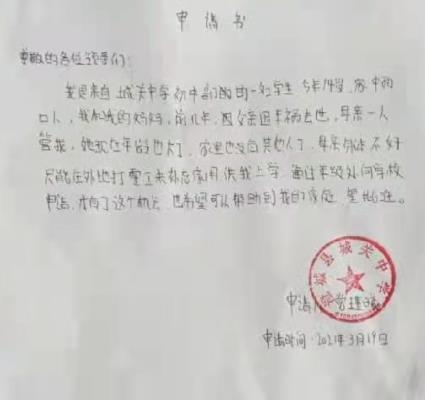 申请书
尊敬的各位领导们：
我是来自城关中学初中部的一名学生 今年14岁，家中两
口人，我和我的妈妈，前几年，因父亲因车祸去世，母亲一人
管我，她现在年龄也大了，家里也没有其他人了，母亲身体不好
只能在外地打零工来补贴家用供我上学。通过年级处向学校
申请，才有了这个机会，也希望可以帮助到我的家庭 望批准。
县城关中学
申请
申请时间：2021年3月19日